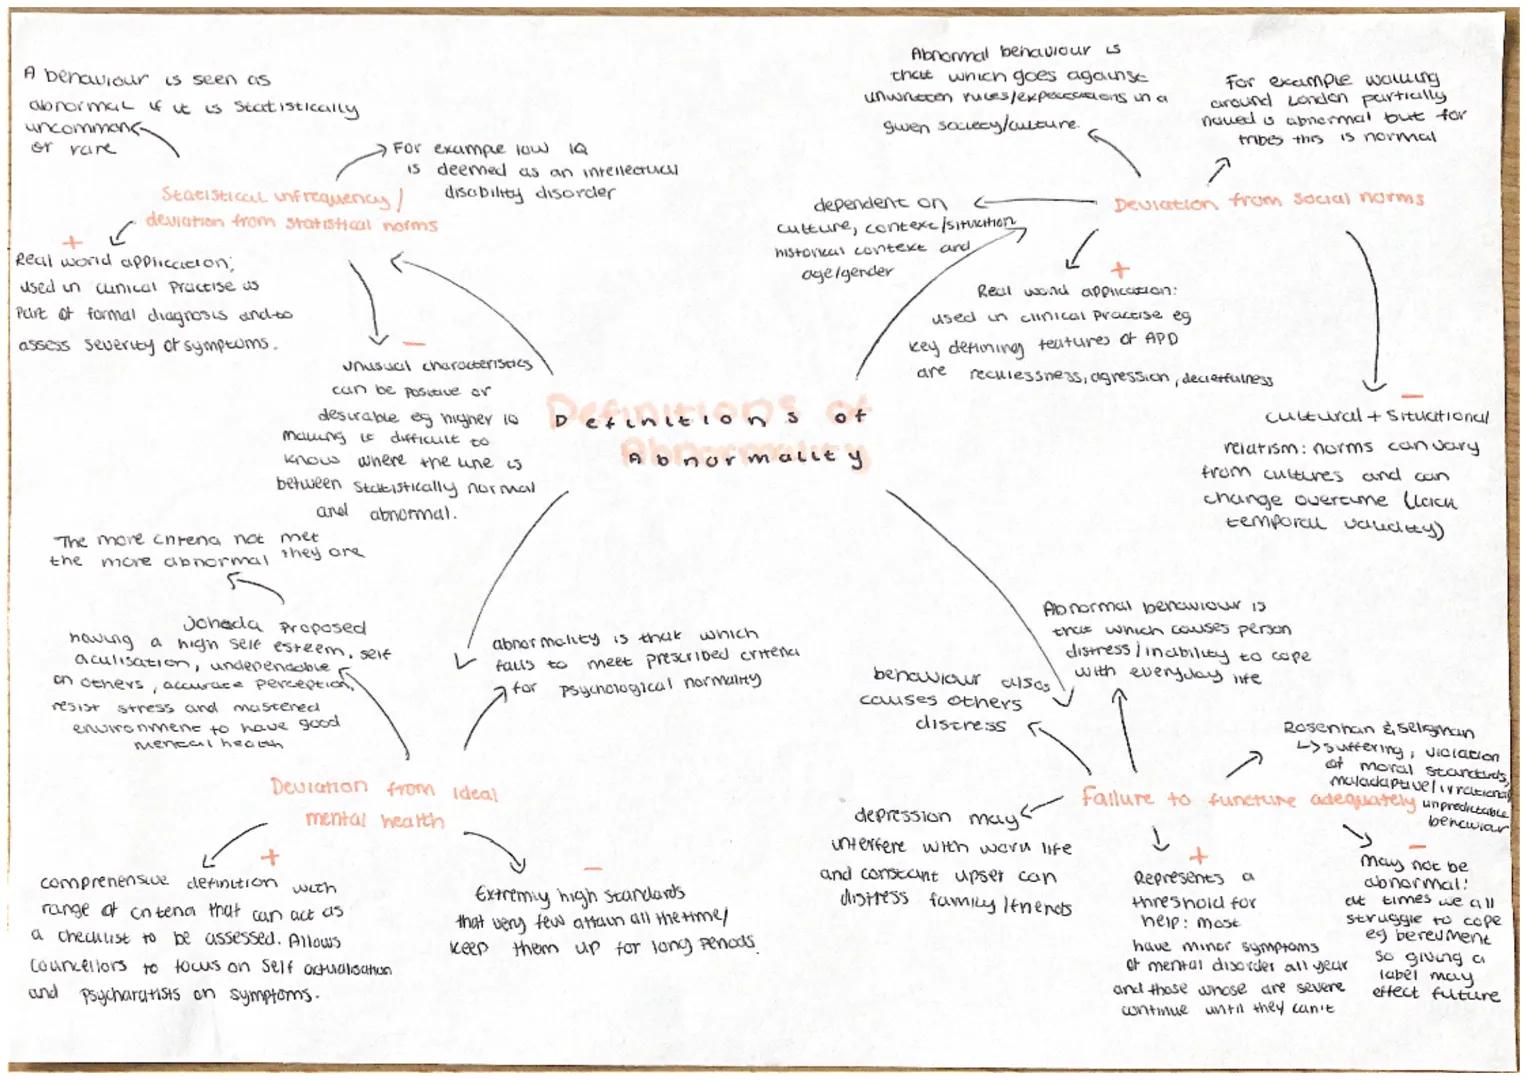 Definitions of
Abnormality
A behaviour is seen as
abnormal if it is statistically
uncommon
or rare
For example low IQ
is deemed as an intellectual
disability disorder
Statistical infrequency /
deviation from statistical norms
+
Real world application;
used in clinical practise as
part of formal diagnosis and to
assess severity of symptoms.
-
unusual characteristics
can be positive or
desirable eg higher IQ
making it difficult to
know where the line is
between statistically normal
and abnormal.
Abnormal behaviour is
that which goes against
unwritten rules/expectations in a
given society/culture.
For example walking
around London partially
naked is abnormal but for
tribes this is normal
Deviation from social norms
dependent on
culture, context/situation
historical context and
age/gender
+
Real world application:
used in clinical practise eg
key defining features of APD
are recklessness, agression, deceitfulness
-
cultural + situational
relatism: norms can vary
from cultures and can
change overtime (lack
temporal validity)
The more criteria not met
the more abnormal they are
Johoda proposed
having a high self esteem, self
aculisation, undependable
on others, accurate perception,
resist stress and mastered
environment to have good
mental health
abnormality is that which
fails to meet prescribed criteria
for psychological normality
Deviation from ideal
mental health
+
comprehensive definition with
range of criteria that can act as
a checklist to be assessed. Allows
councellors to focus on self actualisation
and psycharatists on symptoms.
-
Extremly high standards
that very few attain all the time/
keep them up for long periods.
Abnormal behaviour is
that which causes person
distress/inability to cope
with everyday life
behaviour also
causes others
distress
Rosenhan & seligman
↳ suffering, violation
of moral standards,
maladaptive/irrational
unpredictable
behaviour
Failure to functure adequately
depression may
interfere with work life
and constant upset can
distress family/friends
+
Represents a
threshold for
help: most
have minor symptoms
of mental disorder all year
and those whose are severe
continue until they can't
-
May not be
abnormal:
at times we all
struggle to cope
eg berevment
so giving a
label may
effect future